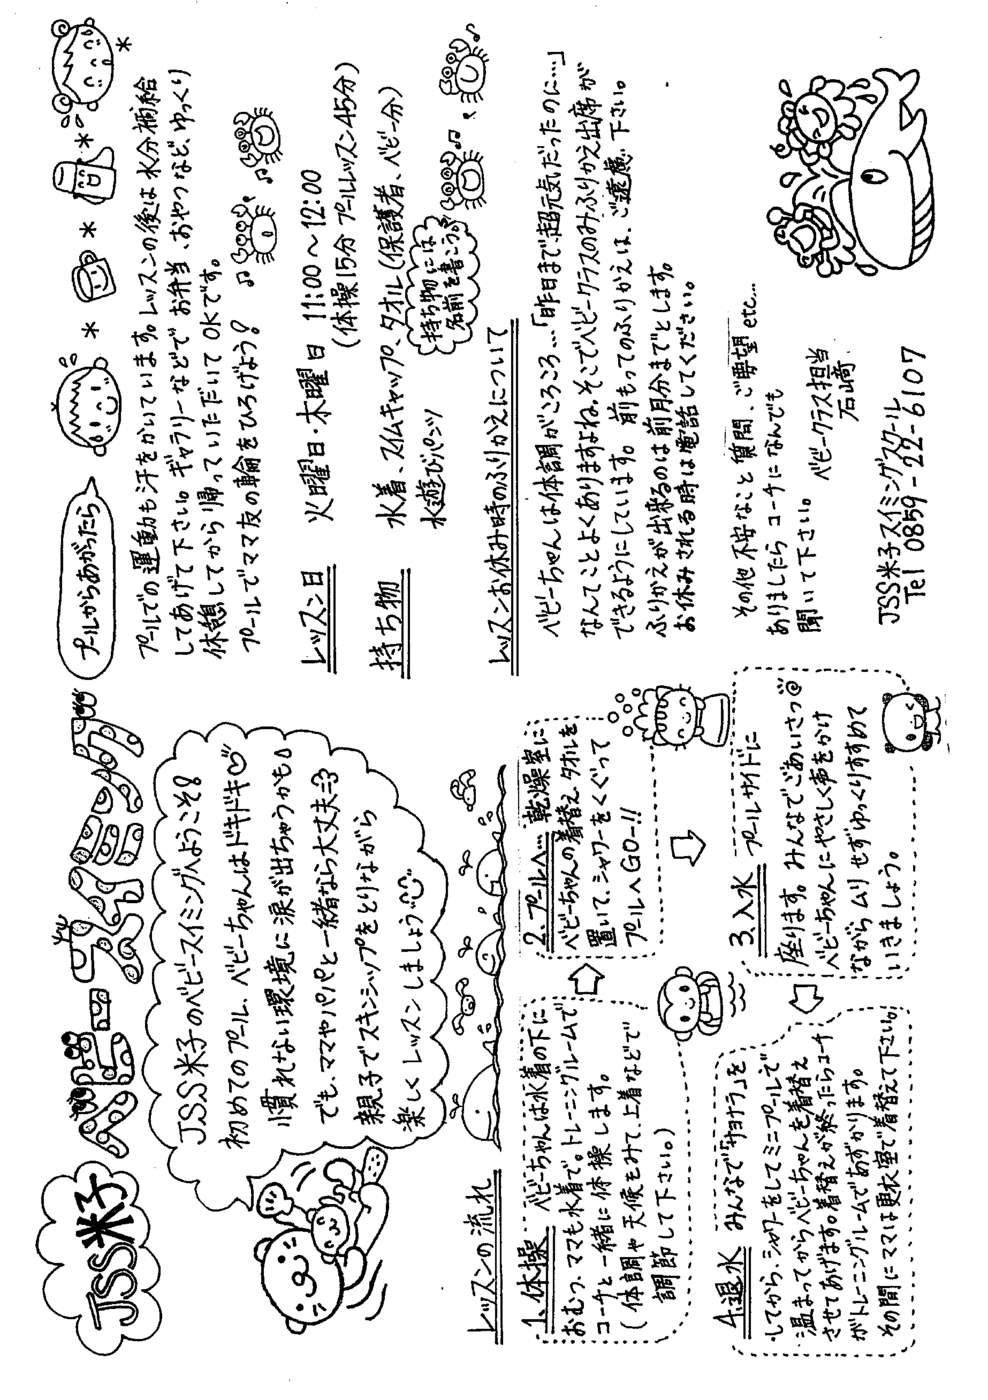 JSS米子
ベビースイミング
JSS米子のベビースイミングへようこそ!
初めてのプール、ベビーちゃんはドキドキ
慣れない環境に涙が出ちゃうかも
でも、ママやパパと一緒なら大丈夫
親子でスキンシップをとりながら
楽しくレッスンしましょう
レッスンの流れ
1.体操 ベビーちゃんは水着の下に
おむつ、ママも水着で。トレーニングルームで
コーチと一緒に体操します。
(体調や天候をみて、上着などで
調節して下さい。)
2.プールへ… 乾燥室に
ベビーちゃんの着替え、タオルを
置いて、シャワーをくぐって
プールへGO-!!
3.入水 プールサイドに
座ります。みんなでごあいさつ
ベビーちゃんにやさしく声をかけ
ながらムリせずゆっくりすすめて
いきましょう。
4.退水 みんなで「サヨナラ」を
してから、シャワーをしてミニプールで
温まってからベビーちゃんを着替え
させてあげます。着替えが終ったらコーチ
がトレーニングルームであずかります。
その間にママは更衣室で着替えて下さい。
プールからあがったら
プールでの運動も汗をかいています。レッスンの後は水分補給
してあげて下さい。ギャラリーなどでお弁当、おやつなど、ゆっくり
休憩してから帰っていただいてOKです。
プールでママ友の輪をひろげよう?
レッスン日 火曜日・木曜日 11:00〜12:00
(体操15分 プールレッスン45分)
持ち物 水着、スイムキャップ、タオル(保護者、ベビー分)
水遊びパンツ
持ち物には
名前を書こう。
レッスンお休み時のふりかえについて
ベビーちゃんは体調がころころ…「昨日まで超元気だったのに…」
なんてことよくありますよね。そこでベビークラスのみふりかえ出席が
できるようにしています。前もってのふりかえは、ご遠慮下さい。
ふりかえが出来るのは前月分までとします。
お休みされる時は電話してください。
その他 不安なこと 質問、ご要望 etc…
ありましたら コーチになんでも
聞いて下さい。
ベビークラス担当
石﨑
JSS米子スイミングスクール
Tel 0859-22-6107